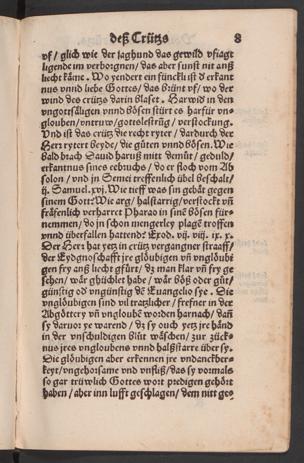 deß Crützs 8
vf / glich wie der Jaghund das gewild vfiagt
ligende im verborgnen / das aber sunst nit anß
liecht käme. Wo yendert ein füncklj ist ð erkant
nus vnnd liebe Gottes / das brünt vf / wo der
wind des crützs darin blaset. Harwid in den
vngottsäligen vnnd bösen stürt es harfür vn-
glouben / vntruw / gottslestrig / verstockung.
Vnd ist das crütz die recht ryter / dardurch der
Herr rytert beyde / die güten vnnd bösen. Wie
bald brach Dauid haruß mitt demüt / gedult /
erkantnus sines eebruchs / do er floch vom Ab
solon / vnd jn Semei treffenlich übel beschalt /
ij. Samuel. xvj. Wie tieff was sin gebät gegen
sinem Gott: Wie arg / halßtarrig / verstockt vñ
fräfenlich verharret Pharao in sinẽ bösen für-
nemmen / do jn schon mengerley plagẽ troffen
vnnd überfallen hattend: Exod. vij. viij. ix. x.
Der Herr hat yetz in crütz vergangner straaff /
der Eydgnoschafft jre glöubigen vñ vnglöubi
gen fry anß liecht gfürt / dz man klar vñ fry ge
sehen / wär ghüchlet habe / wär böß oder güt /
günstig od vngünstig dẽ Euangelio sye. Die
vnglöubigen sind vil tratzlicher / frefner in der
Abgöttery vñ vngloubẽ worden harnach / dañ
sy daruor ye warend / dz sy ouch yetz jre händ
in der vnschuldigen blüt wäschen / zur zück-
nus jres vngloubens vnnd halßstarre über sy.
Die glöubigen aber erkennen jre vndanckber-
keyt / vngehorsame vnd vnfliß / das sy vormals
so gar trüwlich Gottes wort predigen gehört
haben / aber inn lufft geschlagen / dem nit ge-